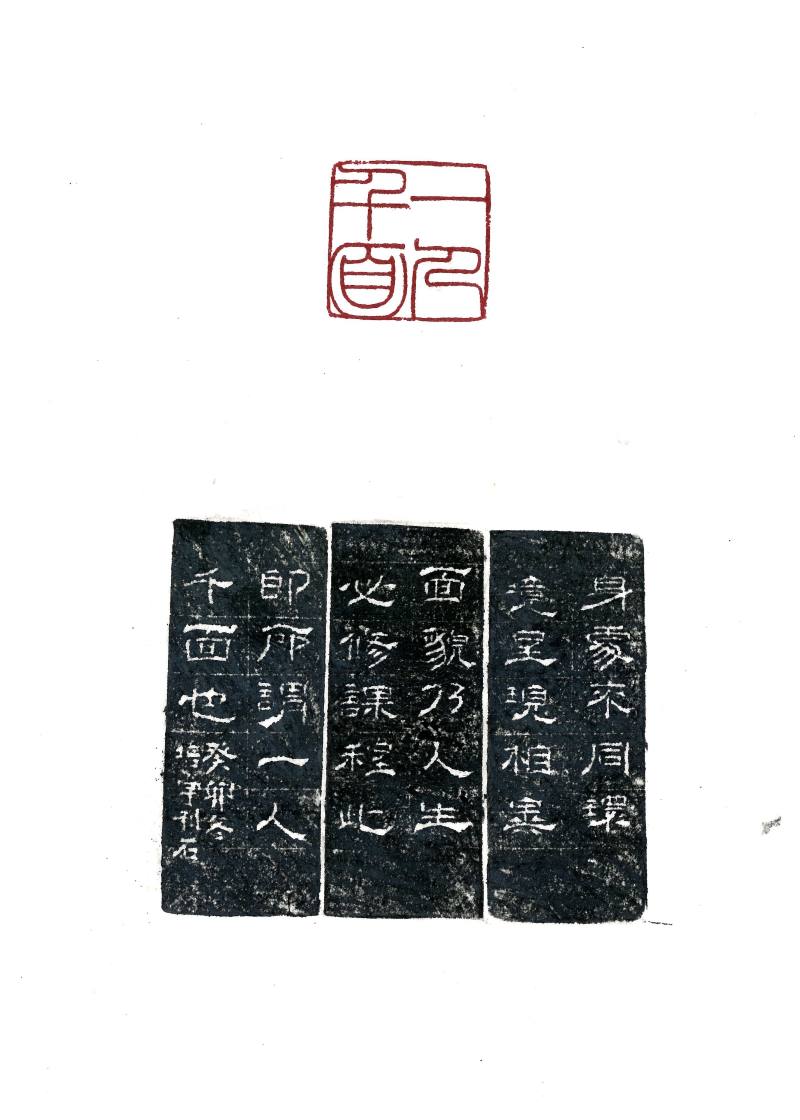 一人
千面
身處不同環
境呈現相異
面貌乃人生
必修課程此
即所謂一人
千面也
癸卯冬
刊石